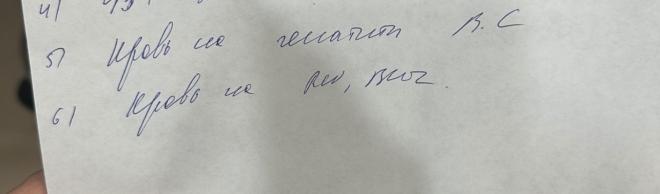 4)
5) Кровь на гепатиты В. С
6) Кровь на RW, ВИЧ.